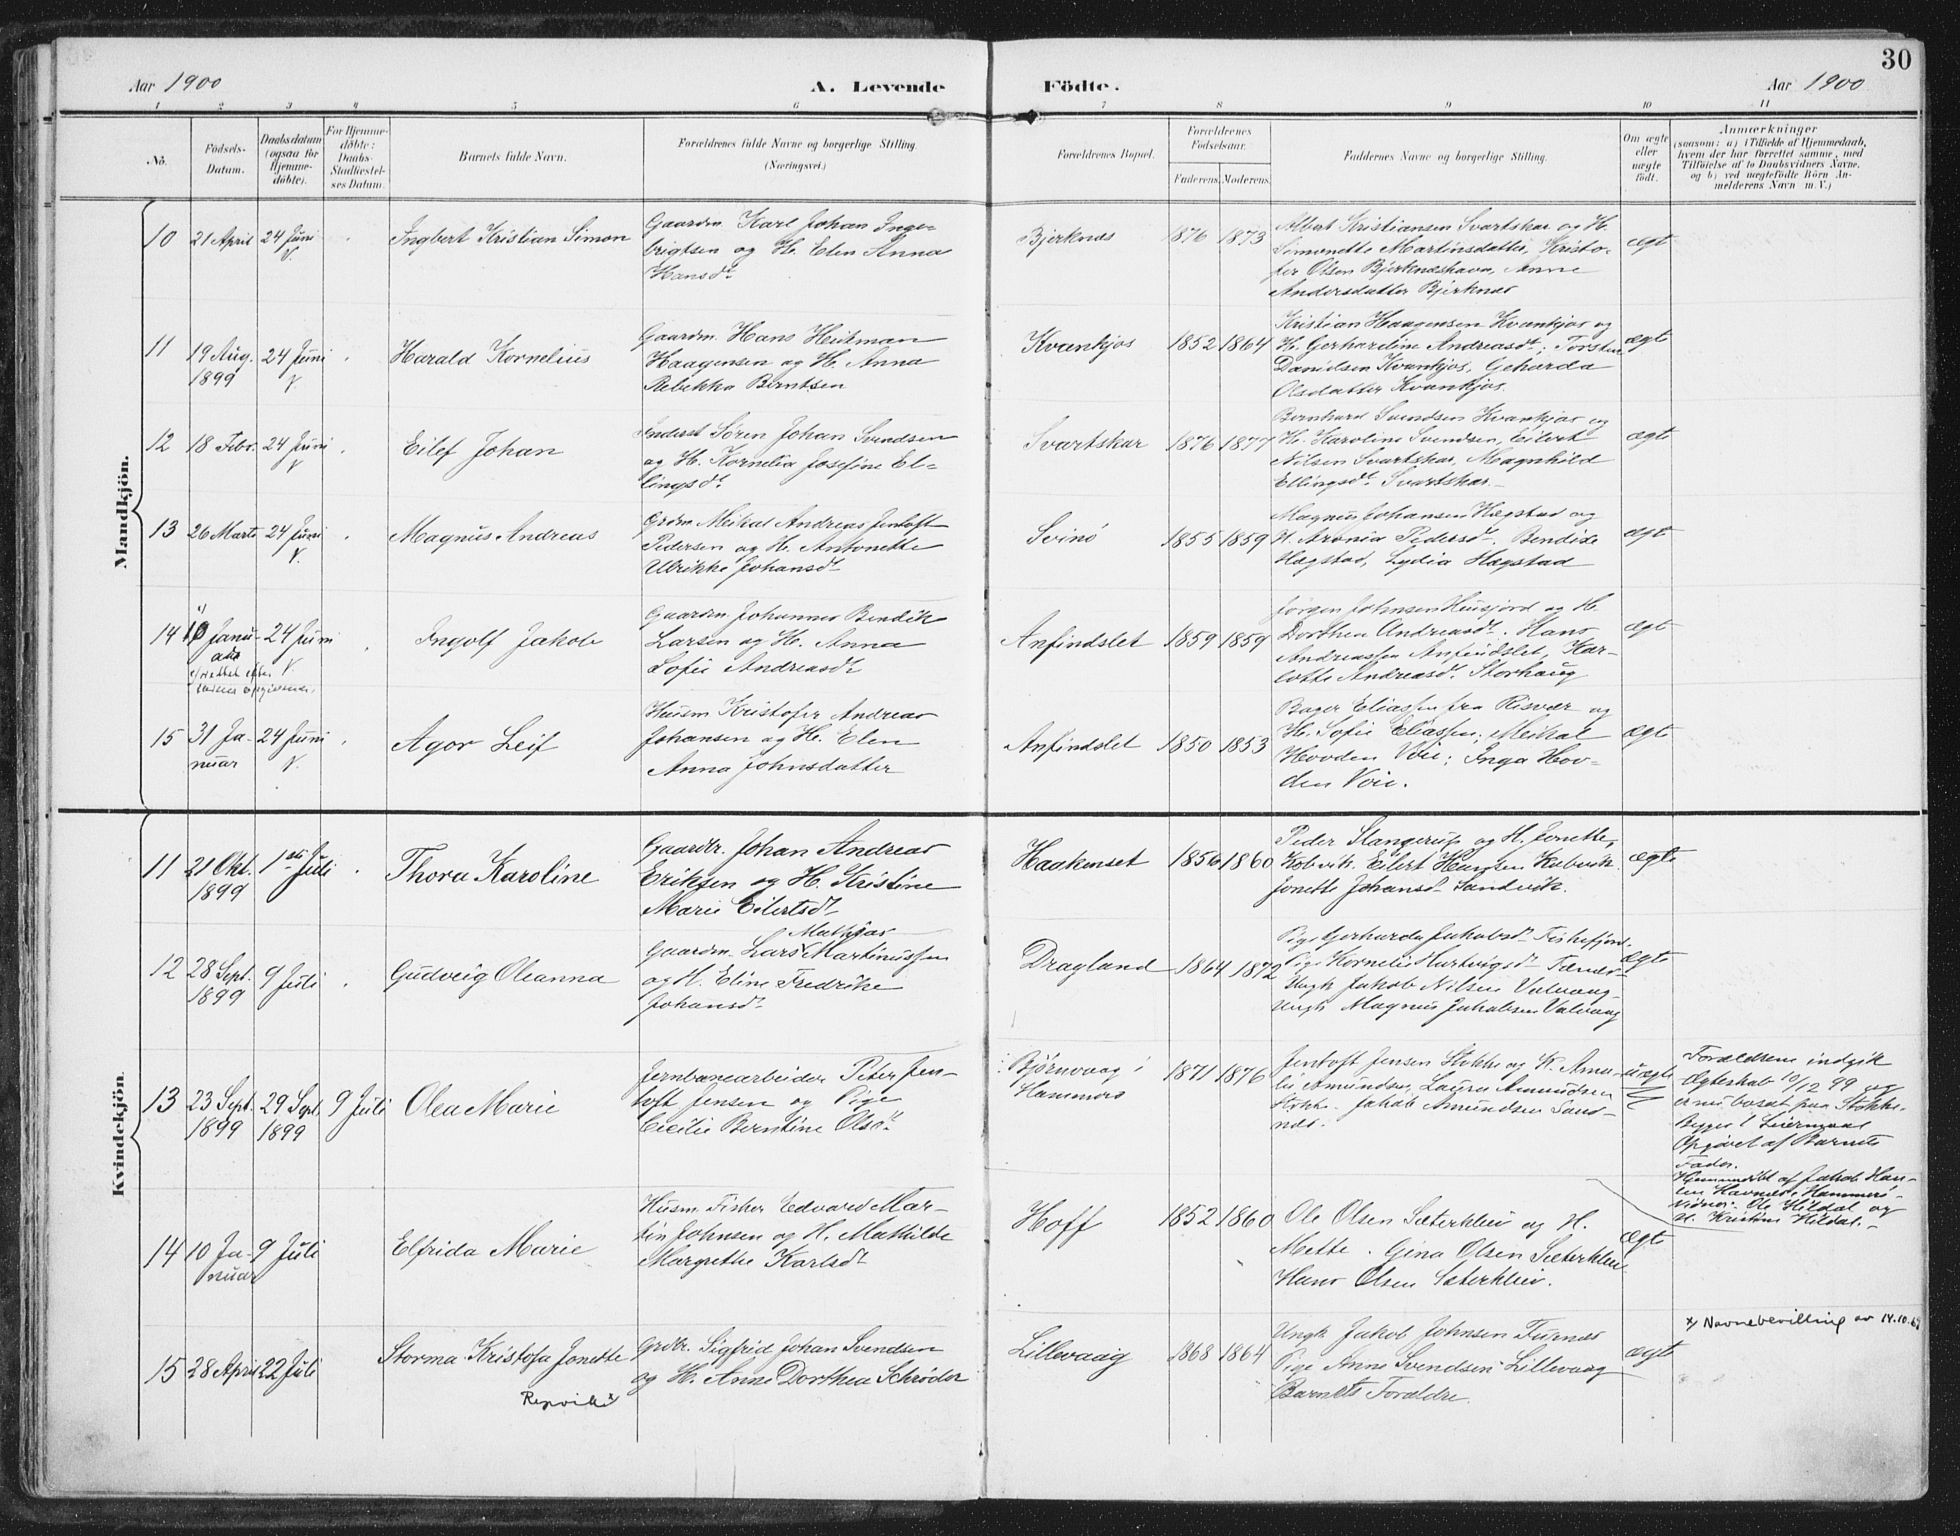 30
Aar 1900
A. Levende
Födte.
Aar 1900
1 2 3 4 5 6 7 8 9 10 11
No.
Födsels-
Datum.
Daabsdatum
(ogsaa for
Hjemme-
döbte).
For Hjemme-
döbte:
Daabs-
Stadfæstel-
ses Datum.
Barnets fulde Navn.
Forældrenes fulde Navne og borgerlige Stilling.
(Næringsvei.)
Forældrenes Bopæl.
Forældrenes
Födselsaar.
Faderens. Moderens.
Faddernes Navne og borgerlige Stilling.
Om ægte
eller
uægte
födt.
Anmærkninger
(saasom: a) i Tilfælde af Hjemmedaab,
hvem der har forrettet samme, med
Tilföielse af to Daabsvidners Navne,
og b) ved uægtefödte Börn An-
melderens Navn m. V.)
Mandkjön.
10
21 April
24 Juni
V.
Ingbert Kristian Simon
Gaardm. Karl Johan Inge-
brigtsen og H. Elen Anna
Hansdt
Bjerknæs
1876 1873
Albert Kristiansen Svartskar og H.
Simonette Martinsdatter, Kristo-
fer Olsen Bjerknæshavn, Anne
Andersdatter Bjerknæs
ægte
11
19 Aug.
1899
24 Juni
V.
Harald Kornelius
Gaardm. Hans Heitman
Haagensen og H. Anna
Rebekka Berntsen
Kvankjos
1852 1864
Kristian Haagensen Kvankjos og
H. Gerhardine Andreasdt, Torsten
Danielsen Kvankjos, Geharda
Olsdatter Kvankjos.
ægte
12
18 Febr.
24 Juni
V
Eilef Johan
Inderst Sören Johan Svendsen
og H. Kornelia Josefine El-
lingsdt
Svartskar
1876 1877
Bernhard Svendsen Kvankjos og
H. Karoline Svendsen, Eilert
Nilsen Svartskar, Magnhild
Ellingsdt Svartskar.
ægte
13
26 Marts
24 Juni
V.
Magnus Andreas
Grdm Meikal Andreas Jentoft
Pedersen og H. Antonette
Ulrikke Johansdt
Svinö
1855 1859
Magnus Johansen Hægstad og
H. Aronia Pedersdt. Bendike
Hægstad, Lydia Hægstad
ægte
14
10 Janu-
24 Juni
V
Ingolf Jakob
Gaardm. Johannes Bendik
Larsen og H. Anna
Sofie Andreasdt
Anfindslet
1859 1859
Jörgen Johnsen Husjord og H.
Dorthea Andreasdt. Hans
Andreassen Anfindslet, Kar-
lotte Andreasdt. Storhaug
ægte
15
31 Ja-
nuar
24 Juni
V.
Agor Leif
Husm Kristofer Andreas
Johansen og H. Elen
Anna Johnsdatter
Anfindslet
1850 1853
Bager Eliassen fra Risvær og
H. Sofie Eliassen; Meikal
Hovden Voie; Inga Hov-
den Voie.
ægte
Kvindekjön.
11
21 Okt.
1899
1ste Juli
Thora Karoline
Gaardbr. Johan Andreas
Eriksen og H. Kristine
Marie Eilertsdt
Haakenset
1856 1860
Peder Stangerup og H. Jonette,
Kobvik. Eilert Hansen Kobvik.
Jonette Johansdt Sandvik.
ægte
12
28 Sept.
1899
9 Juli
Gudveig Oleanna
Mathias
Gaardm. Lars Martinussen
og H. Eline Fredrike
Johansdt
Dragland
1864 1872
Pige Gerharda Jakobsdt Fiskefjord.
Pige Kornelie Hartvigsdt
Ungk Jakob Nilsen Valvaag
Ungk Magnus Jakobsen Valvaag
ægte
13
23 Sept.
1899
29 Sept.
1899
9 Juli
Olea Marie
Jernbanearbeider Peter Jen-
toft Jensen og Pige
Cecilie Berntine Olsdt
Björnvaag i
Hammerö
1871 1876
Jentoft Jensen Stokke og H. Ama-
lie Amundsen, Laura Amundsen
Stokke. Jakob Amundsen Sand-
næs.
uægte
Forældrene indgik
Ægteskab 10/12 99 og
er nu bosat paa Stokke.
Begges 1 Leiermaal
Opgivet af Barnets
Fader.
Hjemmedöbt af Jakob Han-
sen Havnæs, Hammerö.
Vidner: Ole Hildal og
H. Kristine Hildal.
14
10 Ja-
nuar
9 Juli
Elfrida Marie
Husm. Fisker Edvard Mar-
tin Johnsen og H. Mathilde
Margrethe Karlsdt
Hoff
1852 1860
Ole Olsen Sæterkleiv og H.
Mette. Gina Olsen Sæterkleiv
Hans Olsen Sæterkleiv.
ægte
15
28 April
22 Juli
Storma Kristofa Jonette
Repvik x
Grdbr. Sigfrid Johan Svendsen
og H. Anne Dorthea Schröder
Lillevaag
1868 1864
Ungk Jakob Johnsen Furnæs
Pige Anne Svendsen Lillevaag
Barnets Forældre.
ægte
x) Navnebevilling av 14.10.69